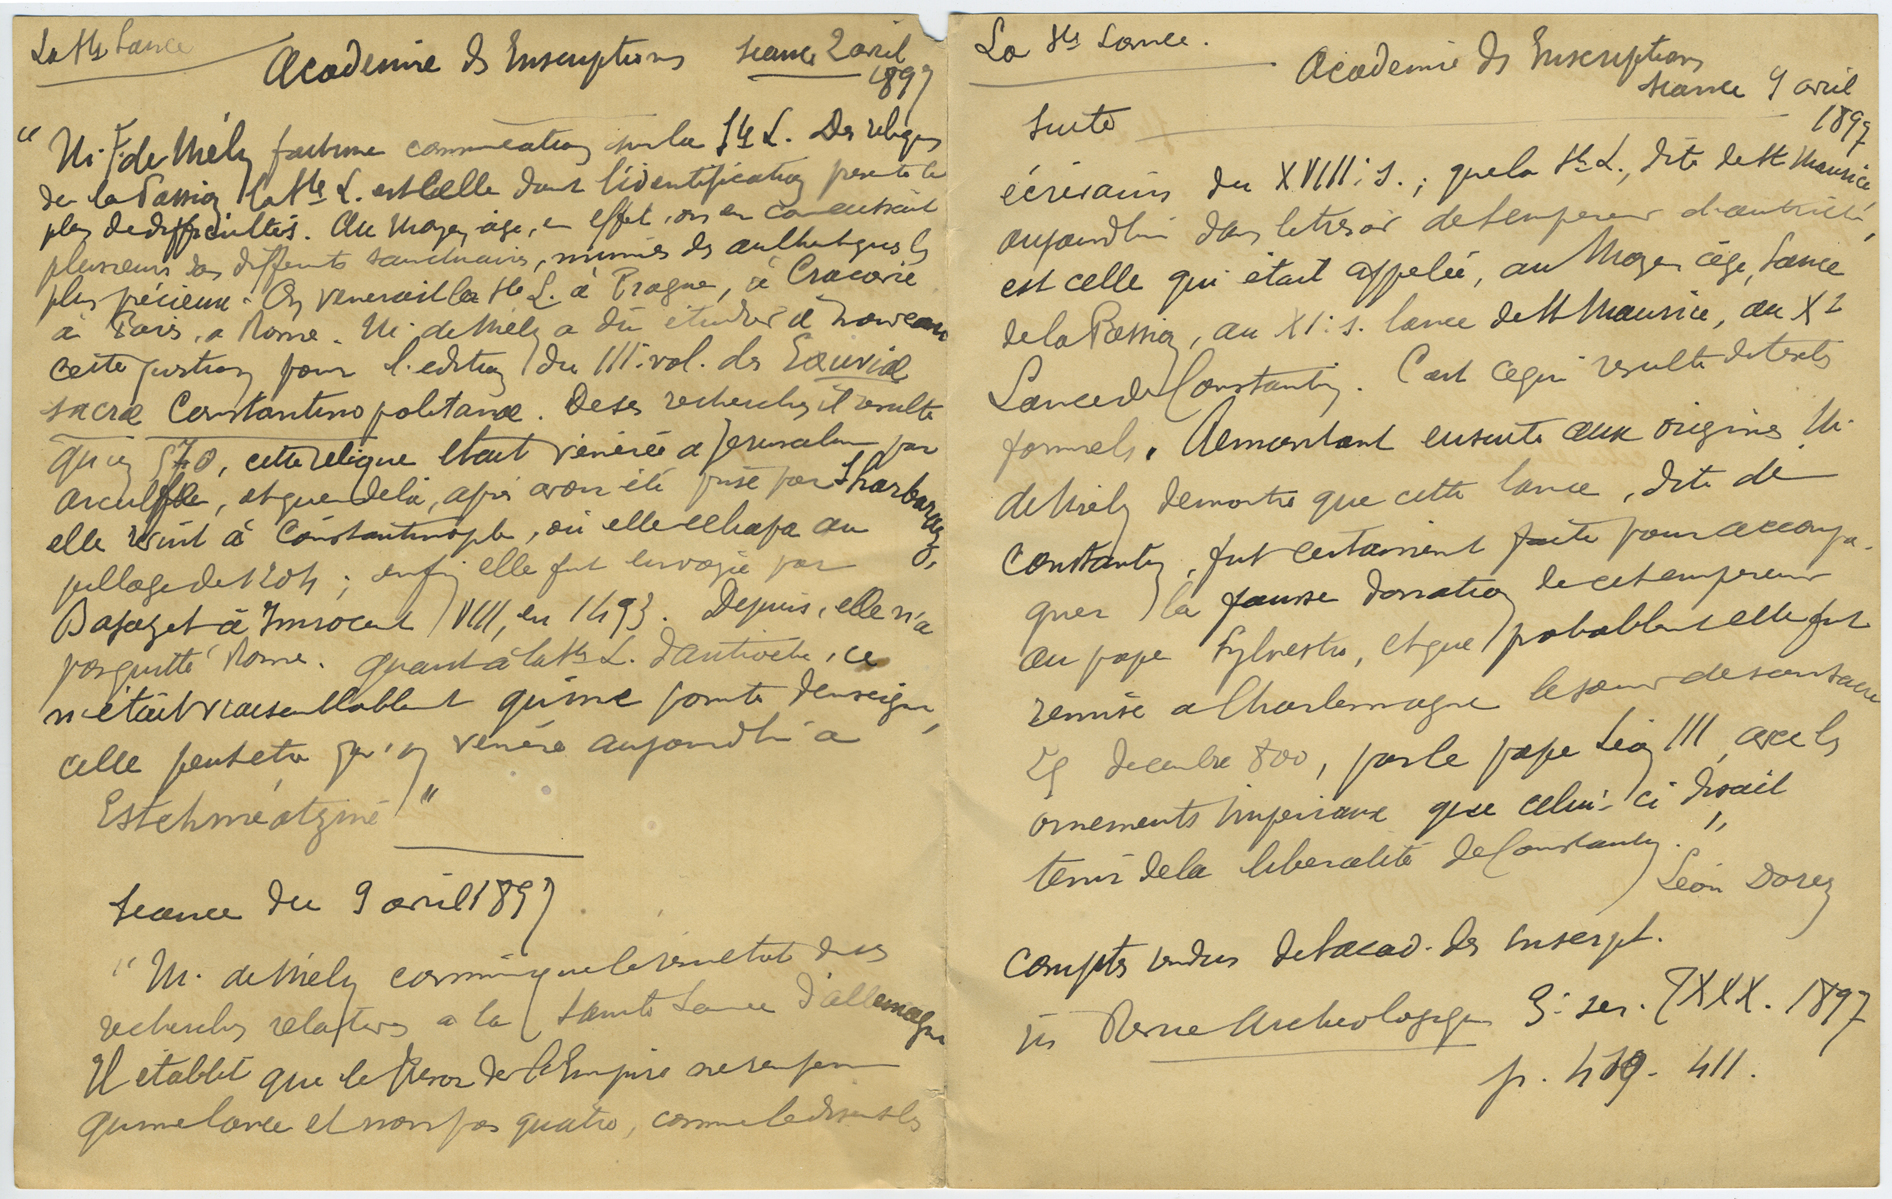 La Ste Lance
Academie ds Inscriptions seance 2 avril
1897
" M. F. de Mély fait une communication sur la Ste L. Des reliques
de la Passion la Ste L. est celle dont l'identification presente le
plus de difficultés. Au Moyen age, en effet, on en connaissait
plusieurs dans differents sanctuaires, munies des authentiques les
plus précieux. On venerait la Ste L. à Prague, à Cracovie
à Paris, a Rome. M. de Mély a dû étudier à nouveau
cette question pour l'edition du III: vol. des Exuviæ
sacræ Constantinopolitanæ. De ses recherches il resulte
qu'en 570, cette relique etait vénérée a Jerusalem par
Arculphe, et que de là, après avoir été prise par Sharbaraz,
elle vint à Constantinople, où elle echapa au
pillage de 1204; enfin elle fut envoyée par
Bajazet à Innocent VIII, en 1493. Depuis, elle n'a
pas quitté Rome. Quant à la Ste L. d'Antioche, ce
n'était vraisemblablement qu'une pointe d'enseigne,
celle peut etre qu'on vénère aujourd'hui a
Estchméatziné "
Seance du 9 avril 1897
" M. de Mély communique le resultat de ses
recherches relatives a la Sainte Lance d'allemagne
Il établit que le tresor de l'Empire ne renferme
qu'une lance et non pas quatre, comme le disent les
La Ste Lance.
Academie ds Inscriptions
seance 9 avril
1897
Suite
écrivains du XVIII: s.; que la Ste L., dite de St Maurice
aujourd'hui dans le trésor de l'empereur d'autriche,
est celle qui était appelée, au Moyen age, Lance
de la Passion, au XI: s. lance de St Maurice, au Xe
Lance de Constantin. C'est ce qui resulte de textes
formels. Remontant ensuite aux origines M.
de Mély demontre que cette lance, dite de
Constantin, fut certainement faite pour accompa-
gner la fausse donation de cet empereur
au pape Sylvestre, et que probablement elle fut
remise a Charlemagne le jour de son sacre
25 decembre 800, par le pape Léon III, avec les
ornements impériaux que celui-ci disait
tenir de la liberalité de Constantin. "
Léon Dorez
Comptes rendus de l'acad. des Inscript.
in Revue Archeologique 3: ser. TXXX. 1897
p. 409-411.